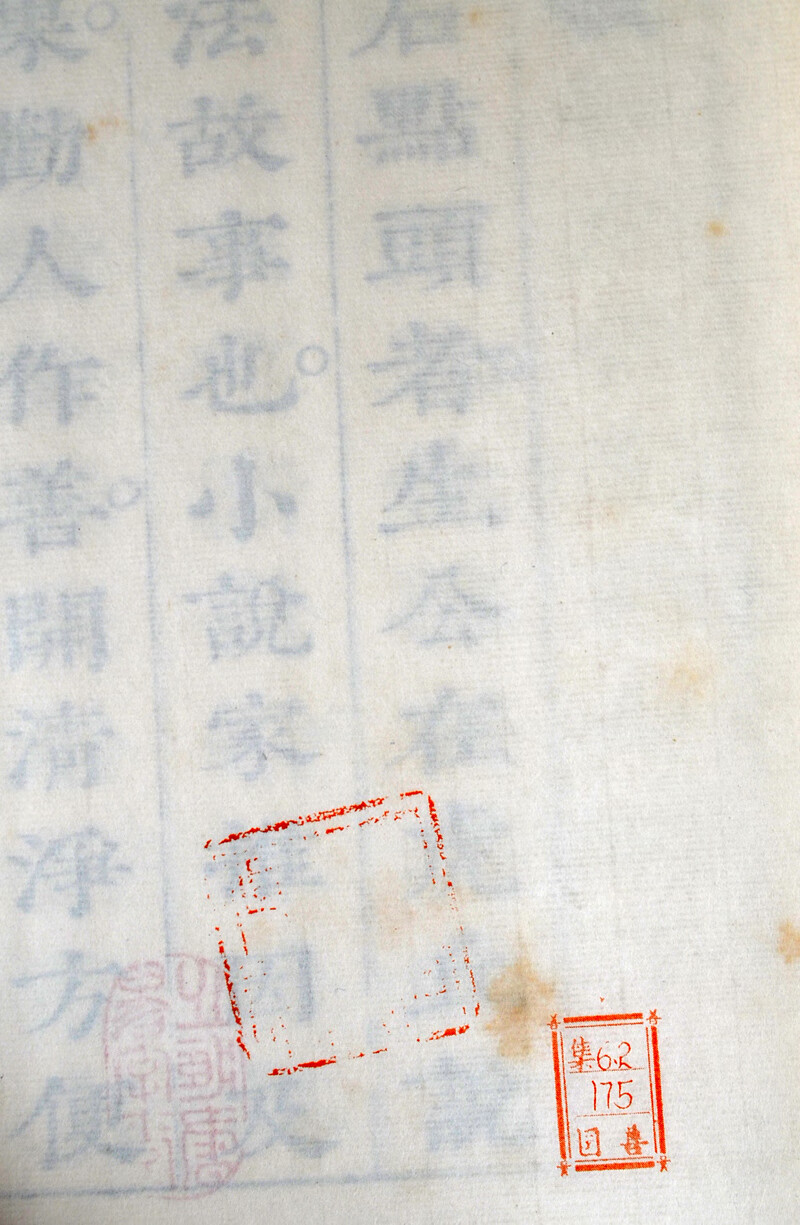 石點頭者生公在虎丘說
法故事也。小說家推因及
果。勸人作善。開清淨方便
集6.2
175
善